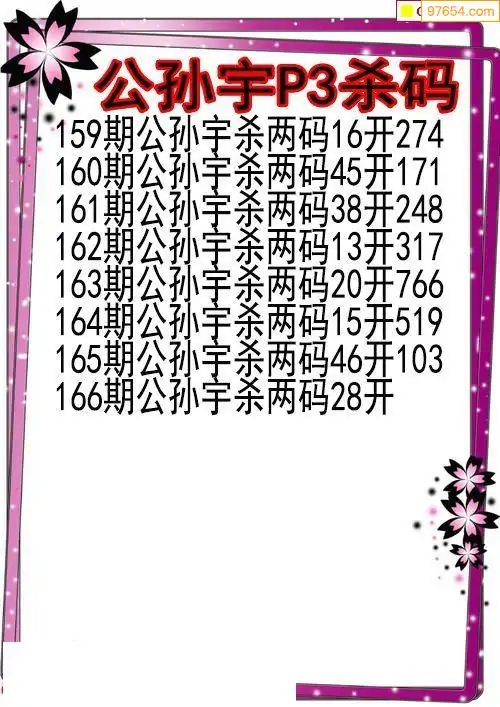 97654.com
公孙宇P3杀码
159期公孙宇杀两码16开274
160期公孙宇杀两码45开171
161期公孙宇杀两码38开248
162期公孙宇杀两码13开317
163期公孙宇杀两码20开766
164期公孙宇杀两码15开519
165期公孙宇杀两码46开103
166期公孙宇杀两码28开